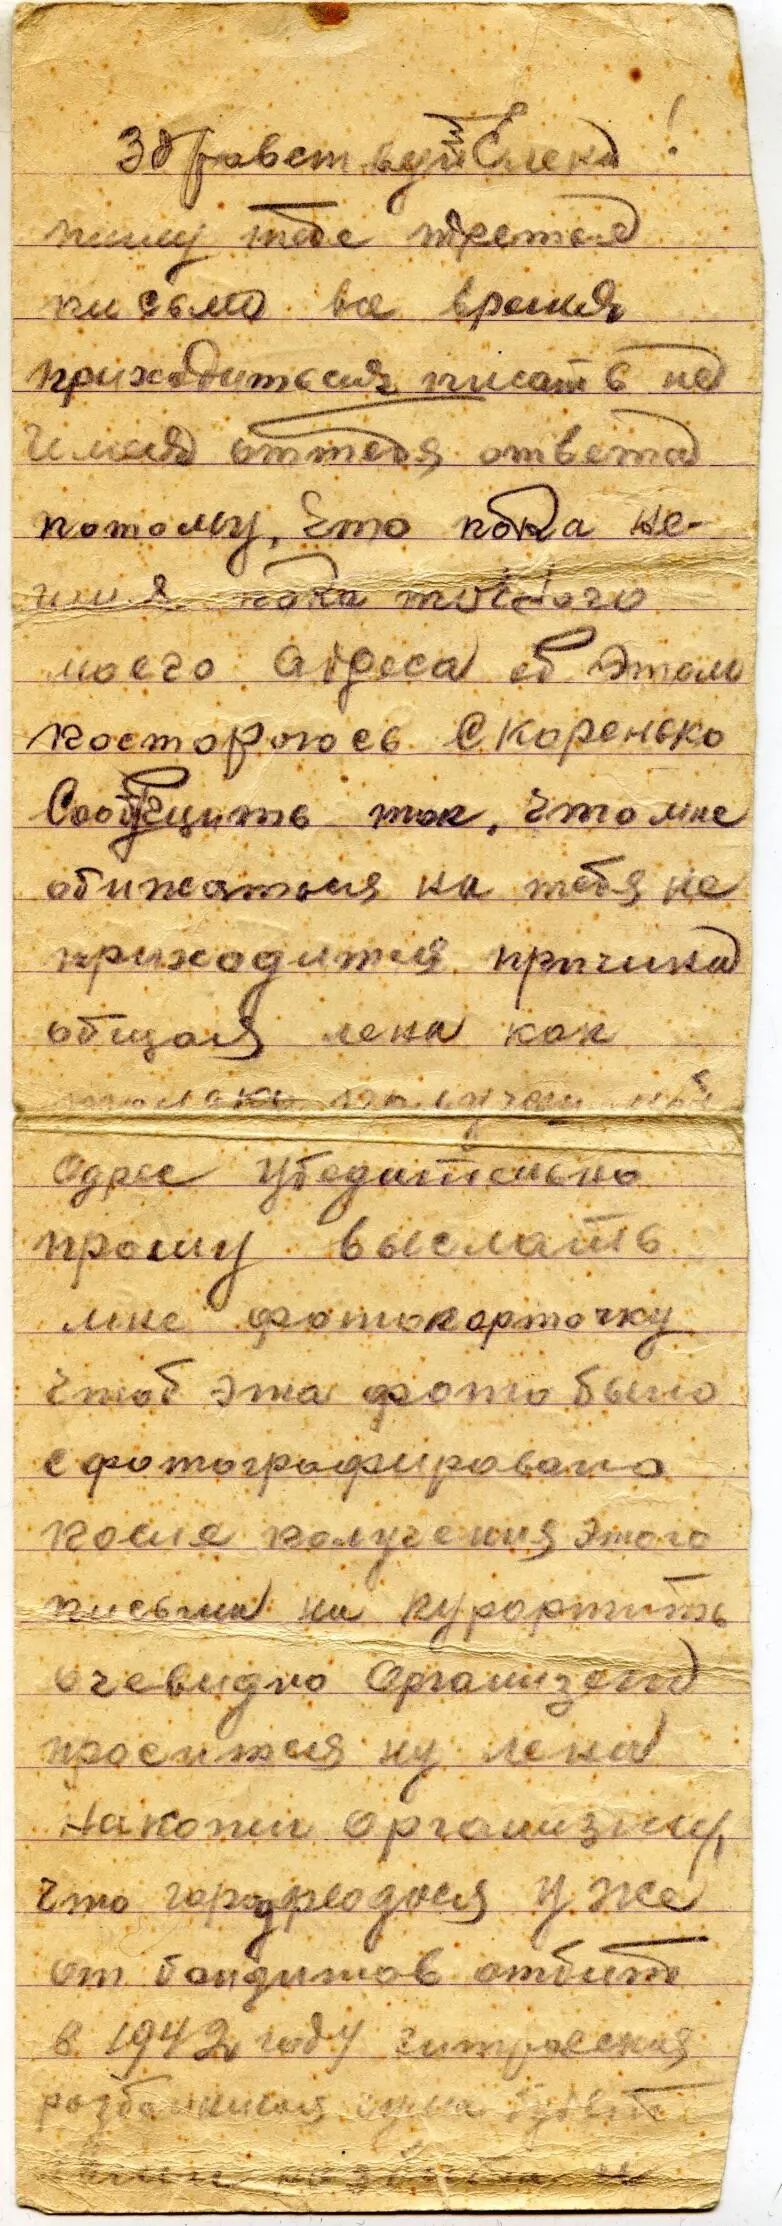 Здравствуй Елена!
пишу тебе третая
письмо все время
приходиться писать не
имея от тебя ответа
потому, что пока не-
имея пока точного
моего адреса об этом
постороюсь скоренько
Сообщить так, что мне
обижаться на тебя не
приходится причина
общая лена как
только получеш мой
адрес убедительно
прошу выслать
мне фотокарточку
чтоб эта фото было
сфотографировано
после получения этого
письма на курортить
очевидно организм
просится ну лена
накажи организму,
что город уже
от бандитов отбит
в 1942 году гитровская
будет
разбита и